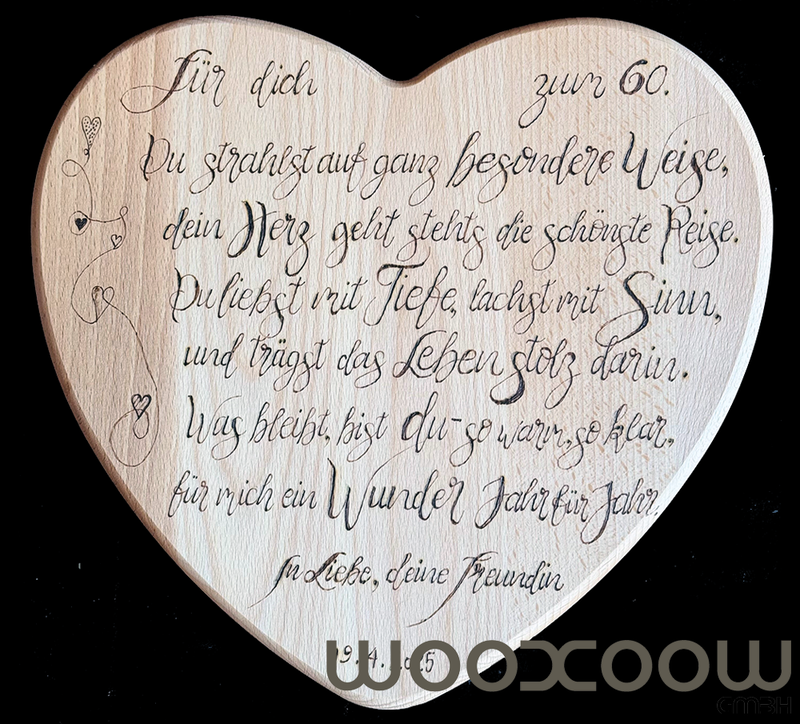 Für dich zum 60.
Du strahlst auf ganz besondere Weise,
dein Herz geht stehts die schönste Reise.
Du liebst mit Tiefe, lachst mit Sinn,
und trägst das Leben stolz darin.
Was bleibt, bist du - so warm, so klar,
für mich ein Wunder Jahr für Jahr.
In Liebe, deine Freundin
19.4.2025
WOOXOOW
GMBH